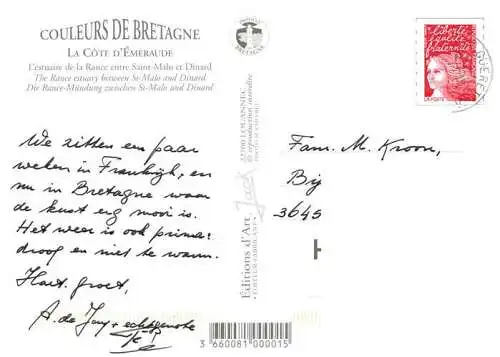 COULEURS DE BRETAGNE
LA CÔTE D'ÉMERAUDE
L'estuaire de la Rance entre Saint-Malo et Dinard
The Rance estuary between St-Malo and Dinard
Die Rance-Mündung zwischen St-Malo und Dinard
BRETAGNE
We zitten een paar
weken in Frankrijk, en
nu in Bretagne waar
de kust erg mooi is.
Het weer is ook prima:
droog en niet te warm.
Hart. groet,
A. de Jay + echtgenote
22100 LOUANNEC
© reproduction interdite
Jack
Editions d'Art
EDITEUR-FABRICANT
3 660081 000015
liberté
égalité
fraternité
LA POSTE
GUERET
Fam. M. Kroon,
Bij
3645